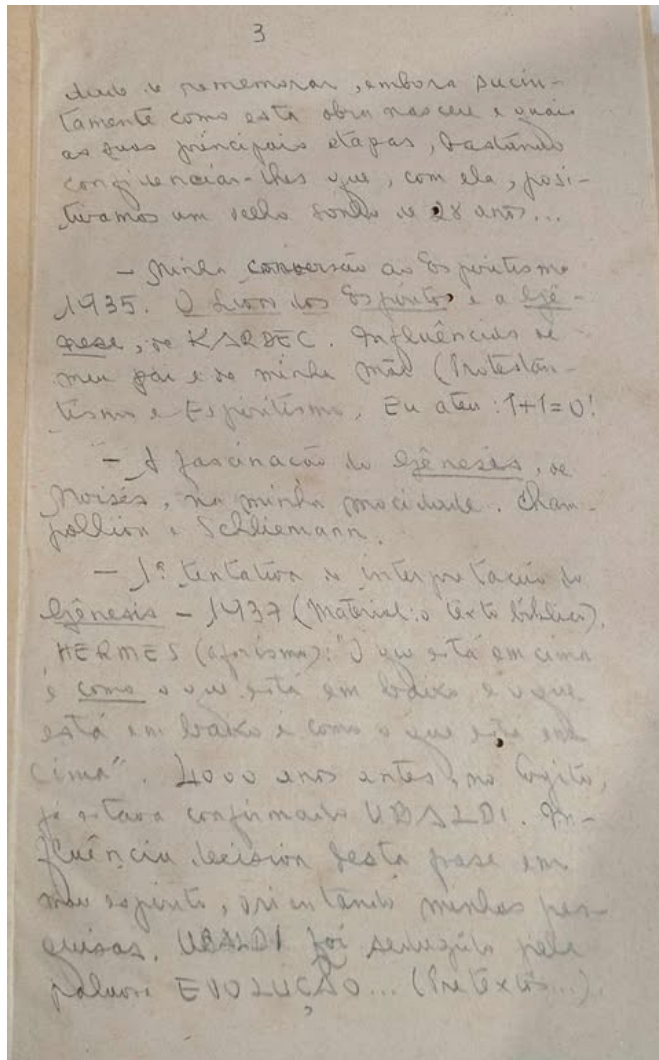 3
de rememorar, embora sucin-
tamente como esta obra nasceu e quais
as suas principais etapas, bastando
confidenciar-lhes que, com ela, posi-
tivamos um velho sonho de 28 anos...
- Minha conversão ao Espiritismo
1935. O Livro dos Espíritos e a Gê-
nese, de KARDEC. Influências de
meu pai e de minha mãe (Protestan-
tismo e Espiritismo, Eu ateu: 1+1=0!
- A fascinação do Gênesis, de
Moisés, na minha mocidade. Cham-
pollion e Schliemann.
- 1ª tentativa de interpretação do
Gênesis - 1937 (Material: o texto bíblico).
HERMES (aforismo): "O que está em cima
é como o que está em baixo e o que
está em baixo é como o que está em
cima". 4000 anos antes, no Egito,
já estava confirmado UBALDI. In-
fluência decisiva desta frase em
meu espírito, orientando minhas pes-
quisas. UBALDI foi seduzido pela
palavra EVOLUÇÃO... (Pretextos...).